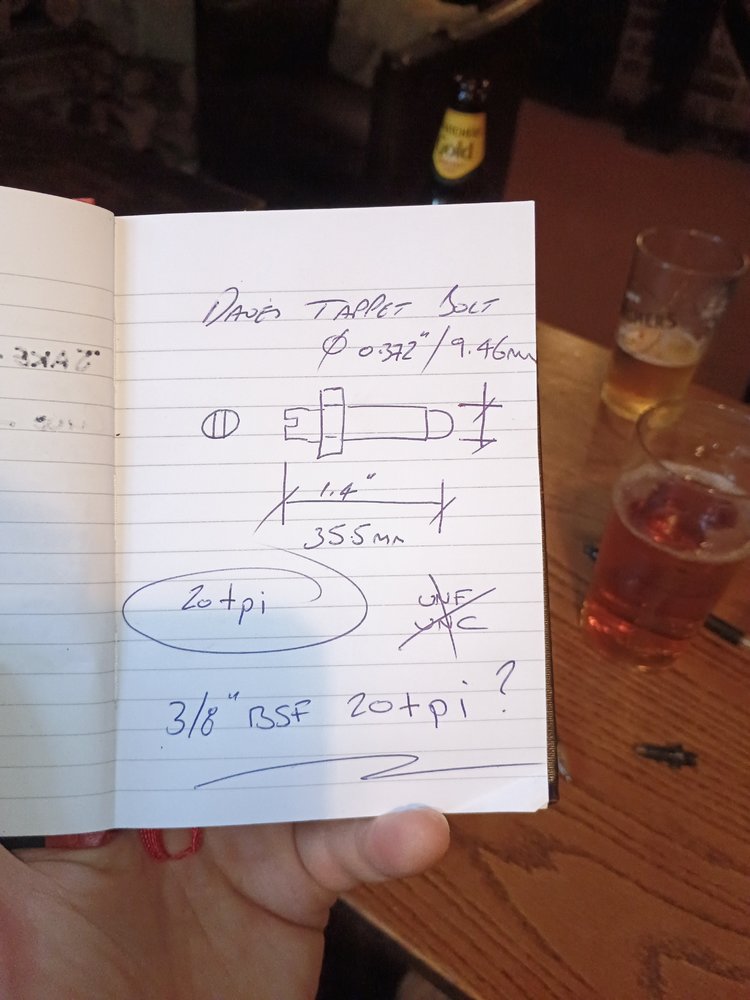 DAVES TAPPET BOLT
Ø 0.372"/9.46mm
1.4"
35.5mm
20tpi
UNF
UNC
3/8" BSF 20tpi ?
Gold